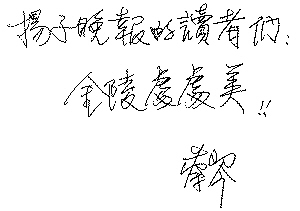 揚子晚報的讀者們:
金陵處處美!!